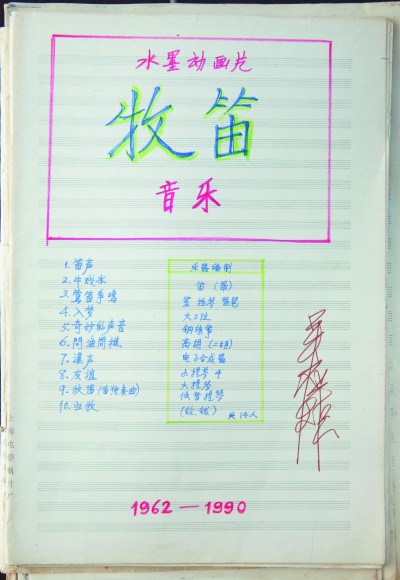 水墨动画片
牧笛
音乐
1. 笛声
2. 牛戏水
3. 莺笛争鸣
4. 入梦
5. 奇妙的声音
7. 瀑声
8. 友谊
9. 牧笛(笛独奏曲)
10. 归牧
乐器编制
笛 (箫)
笙 扬琴 琵琶
大三弦
高胡 (二胡)
电子合成器
小提琴 4
大提琴
低音提琴
共14人
1962—1990